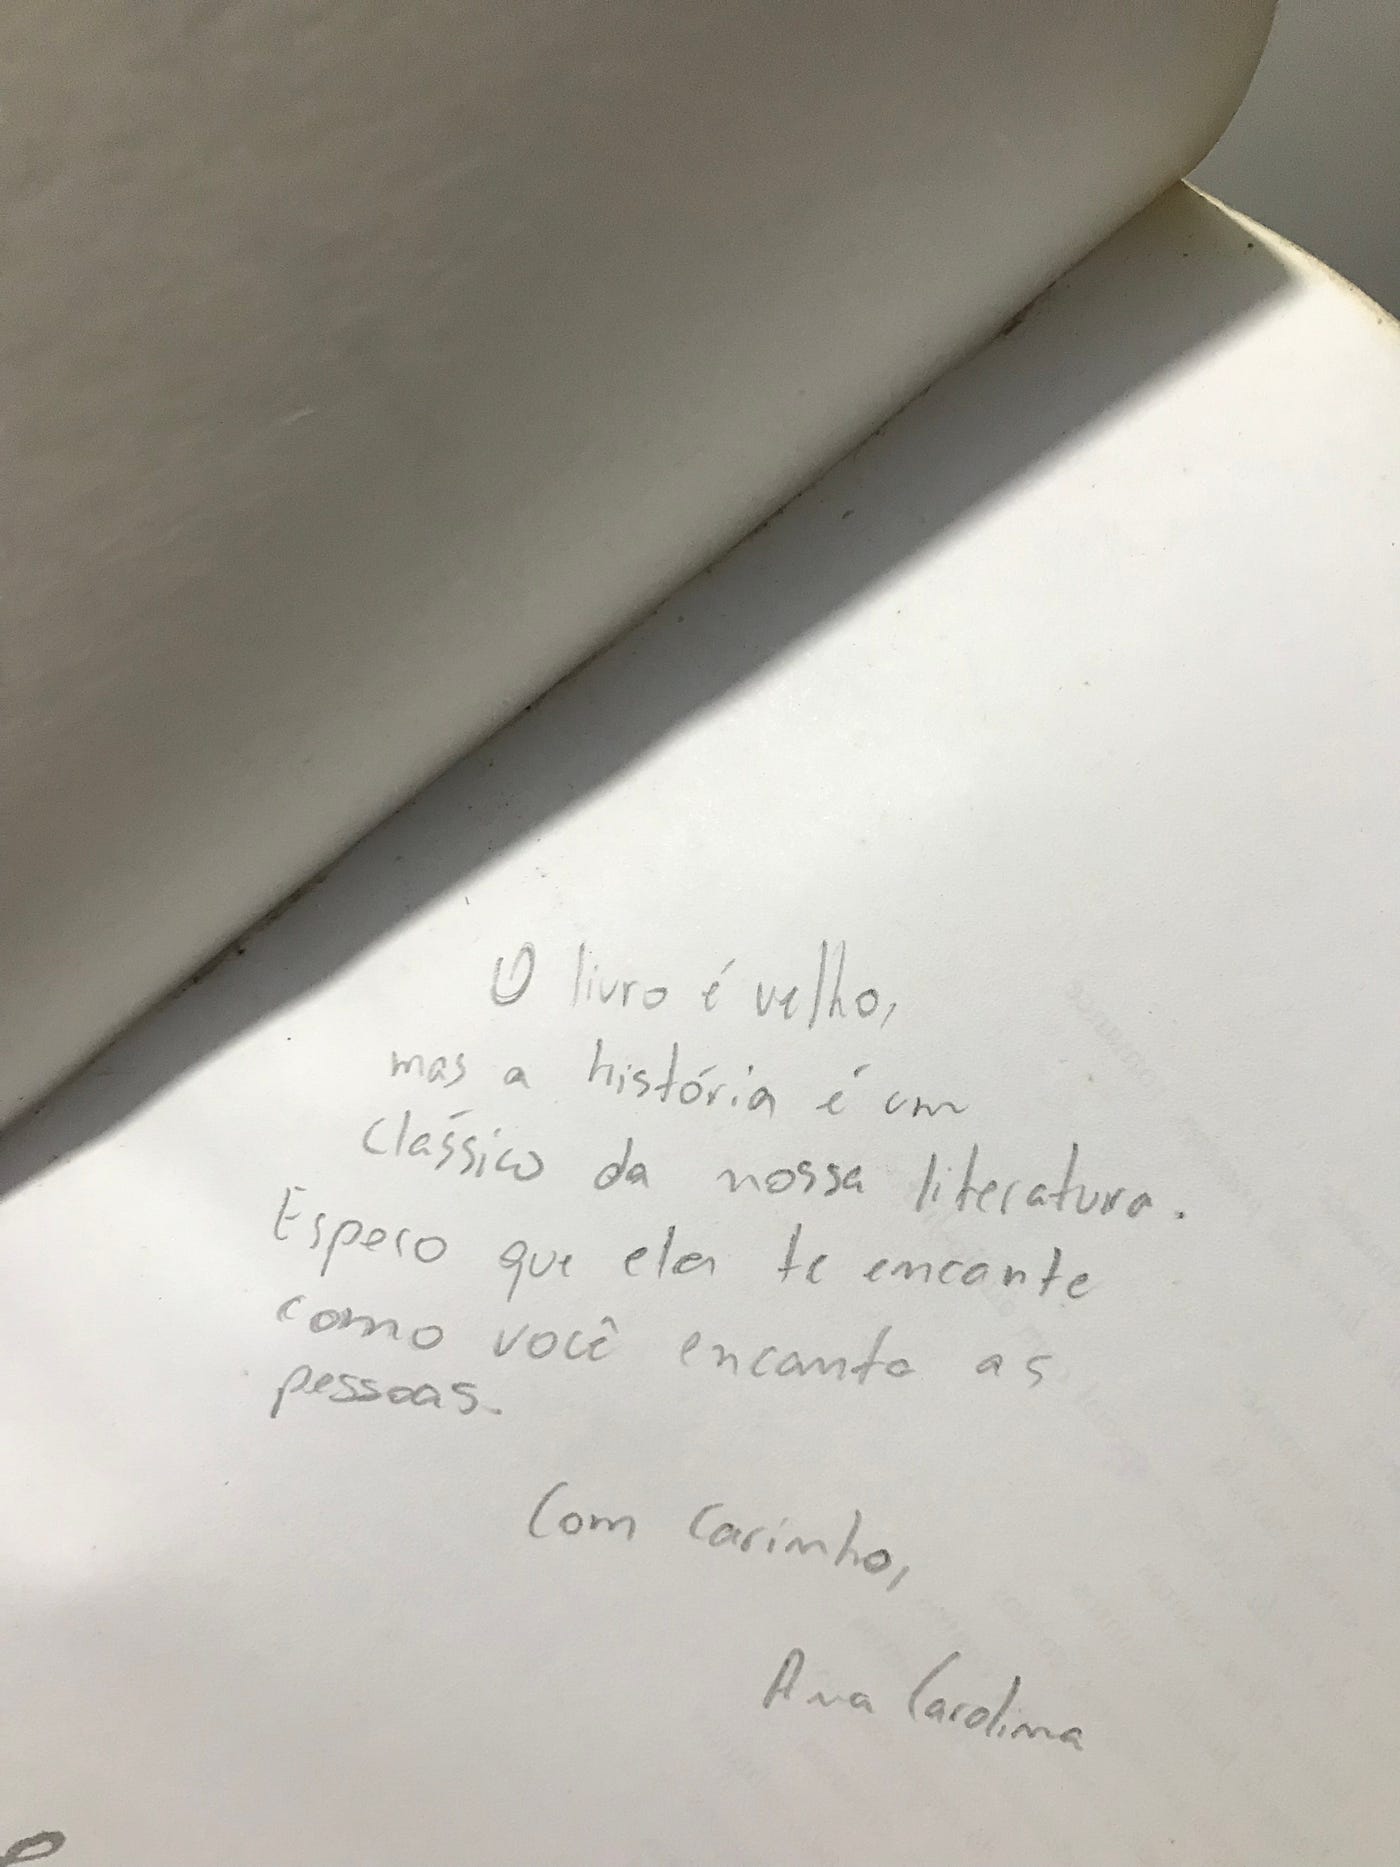 O livro é velho,
mas a história é um
clássico da nossa literatura.
Espero que ela te encante
como você encanta as
pessoas.
Com carinho,
Ana Carolina